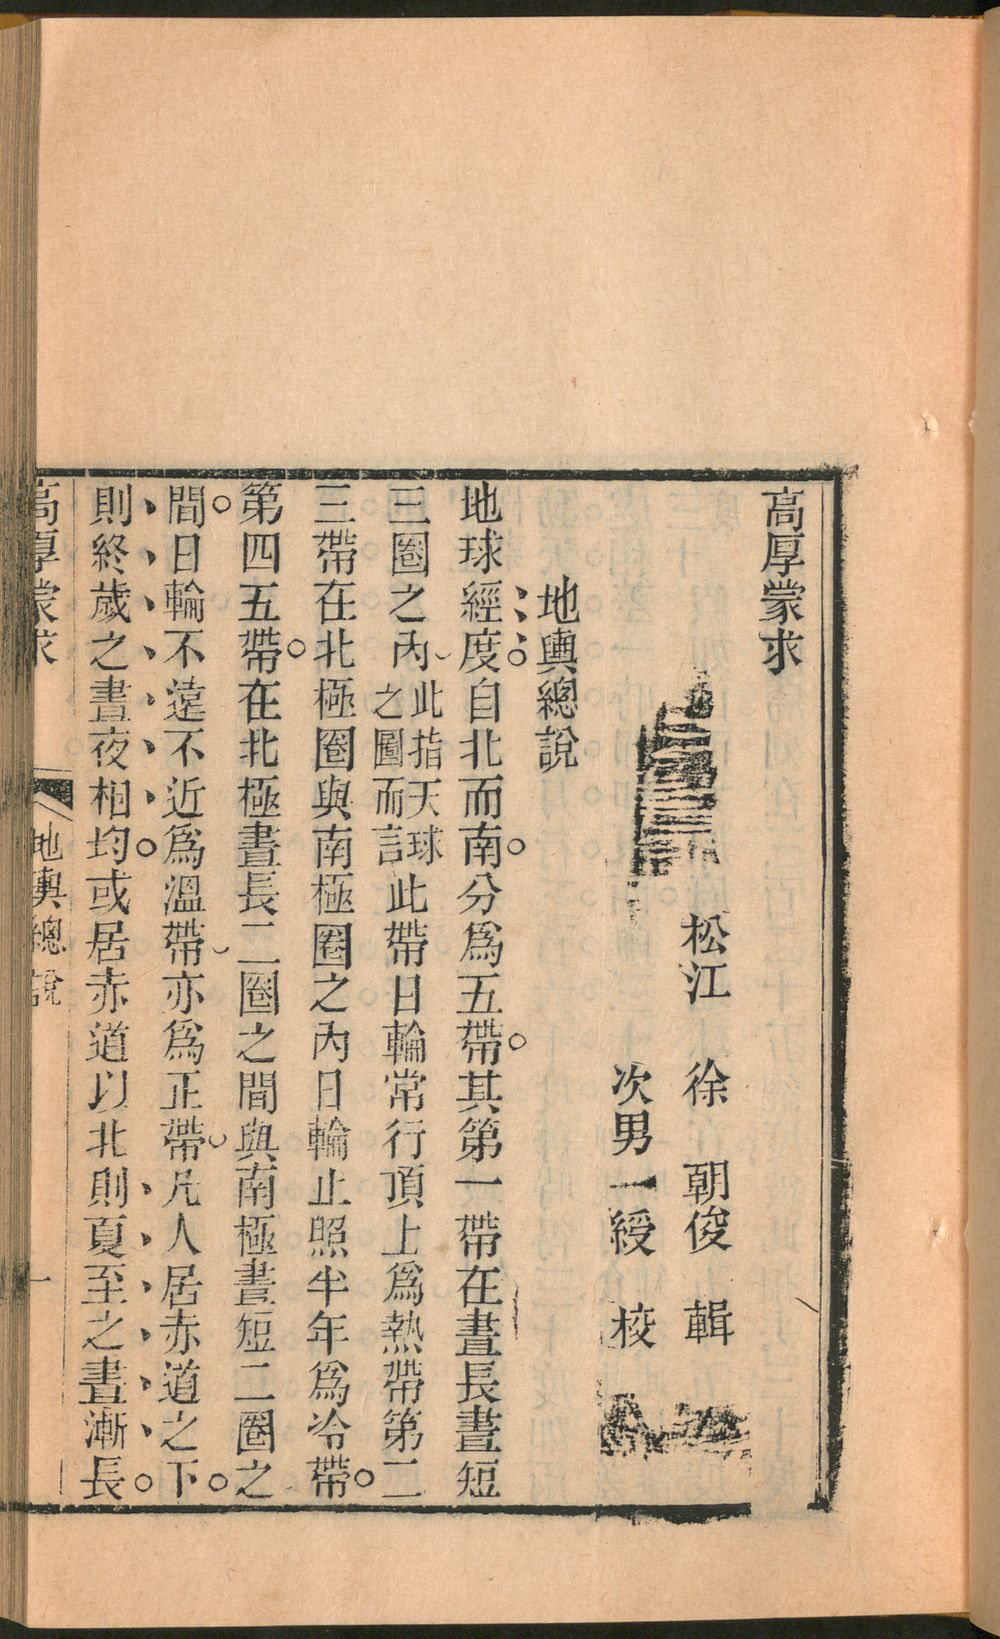 高厚蒙求
松江 徐 朝俊 輯
次男一綬 校
地輿總說
地球經度自北而南分爲五帶其第一帶在晝長晝短
三圈之內此指天球之圖而言此帶日輪常行頂上爲熱帶第二
三帶在北極圈與南極圈之內日輪止照半年爲冷帶
第四五帶在北極晝長二圈之間與南極晝短二圈之
間日輪不遠不近爲溫帶亦爲正帶凡人居赤道之下
則終歲之晝夜相均或居赤道以北則夏至之晝漸長
高厚蒙求 地輿總說 一